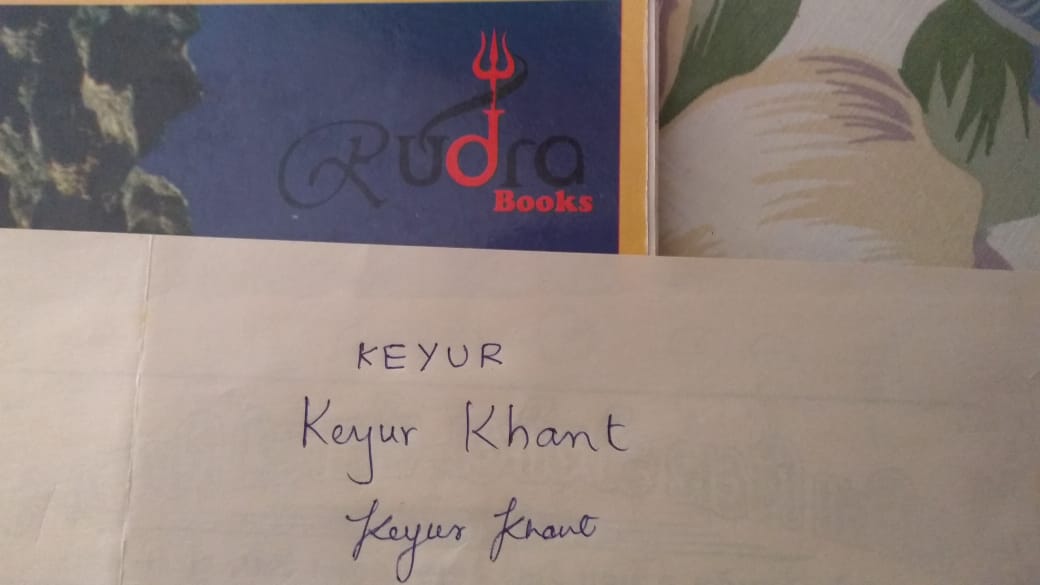 Rudra
Books
KEYUR
Keyur Khant
Keyur Khant